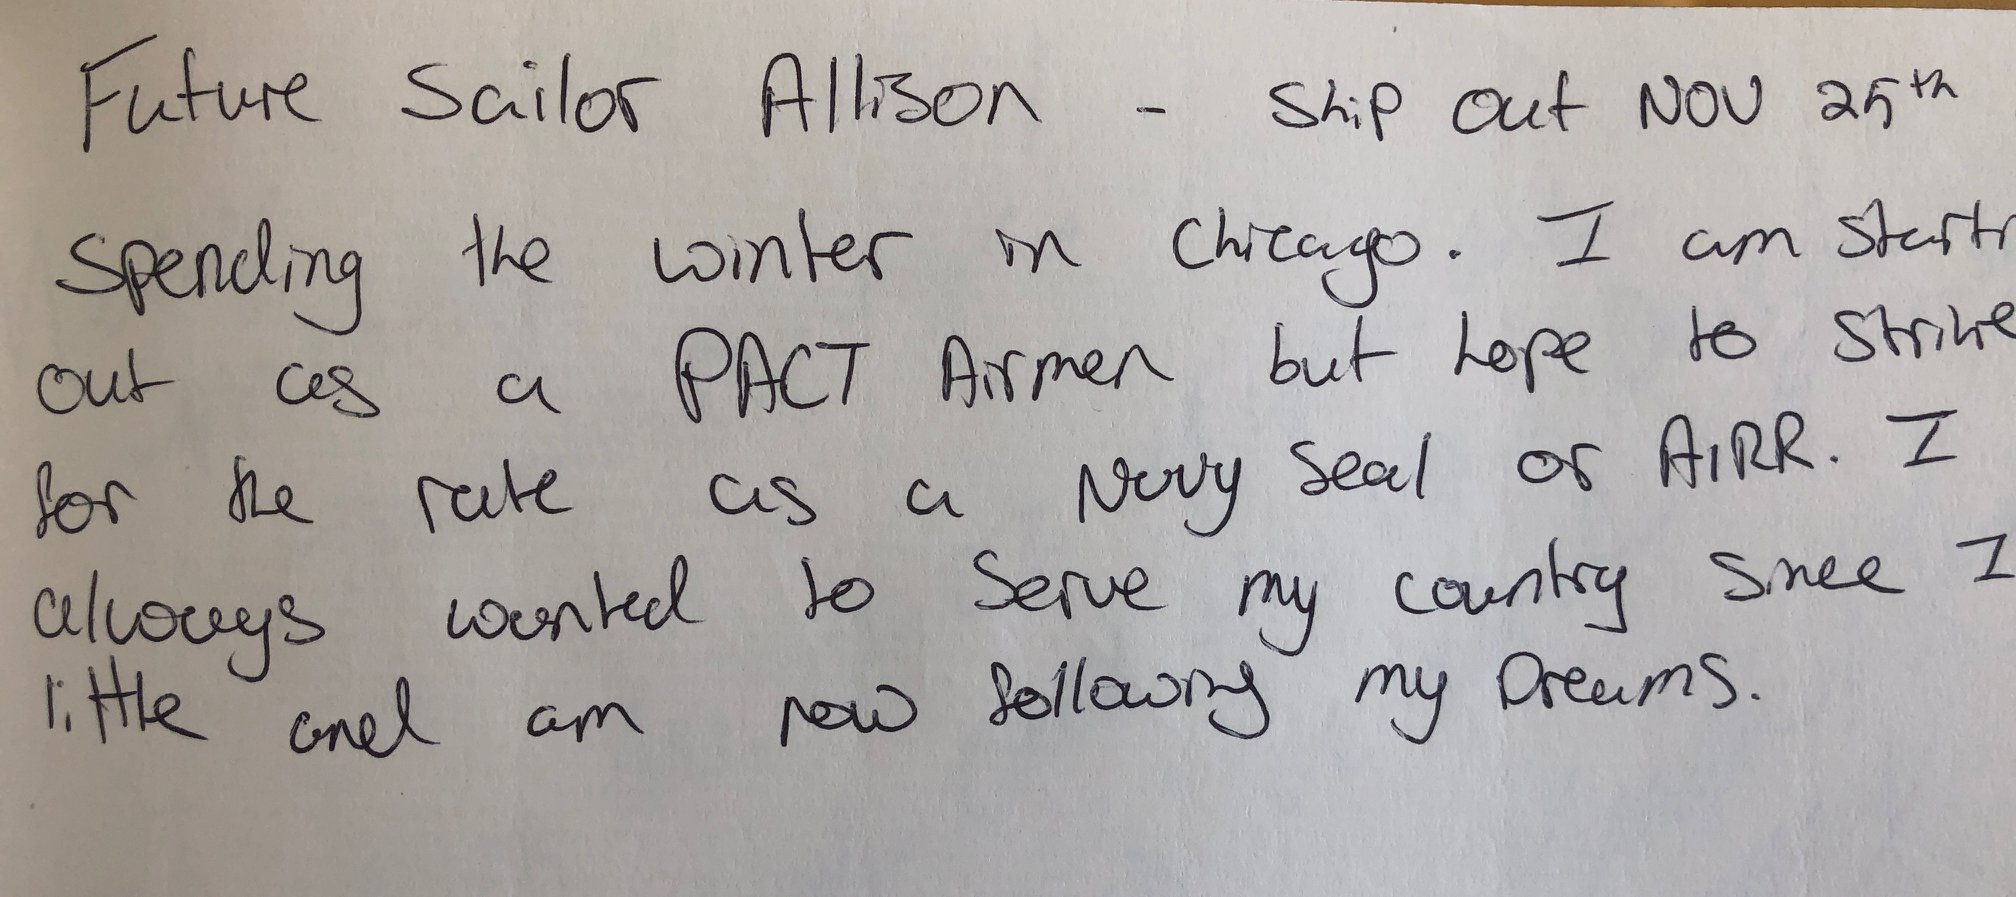 Future Sailor Allison - Ship Out NOV 25th
Spending the winter in Chicago. I am Startn
out as a PACT Airmen but hope to Strike
for the rate as a Navy Seal or AIRR. I
always wanted to Serve my country Since I
little and am now following my Dreams.